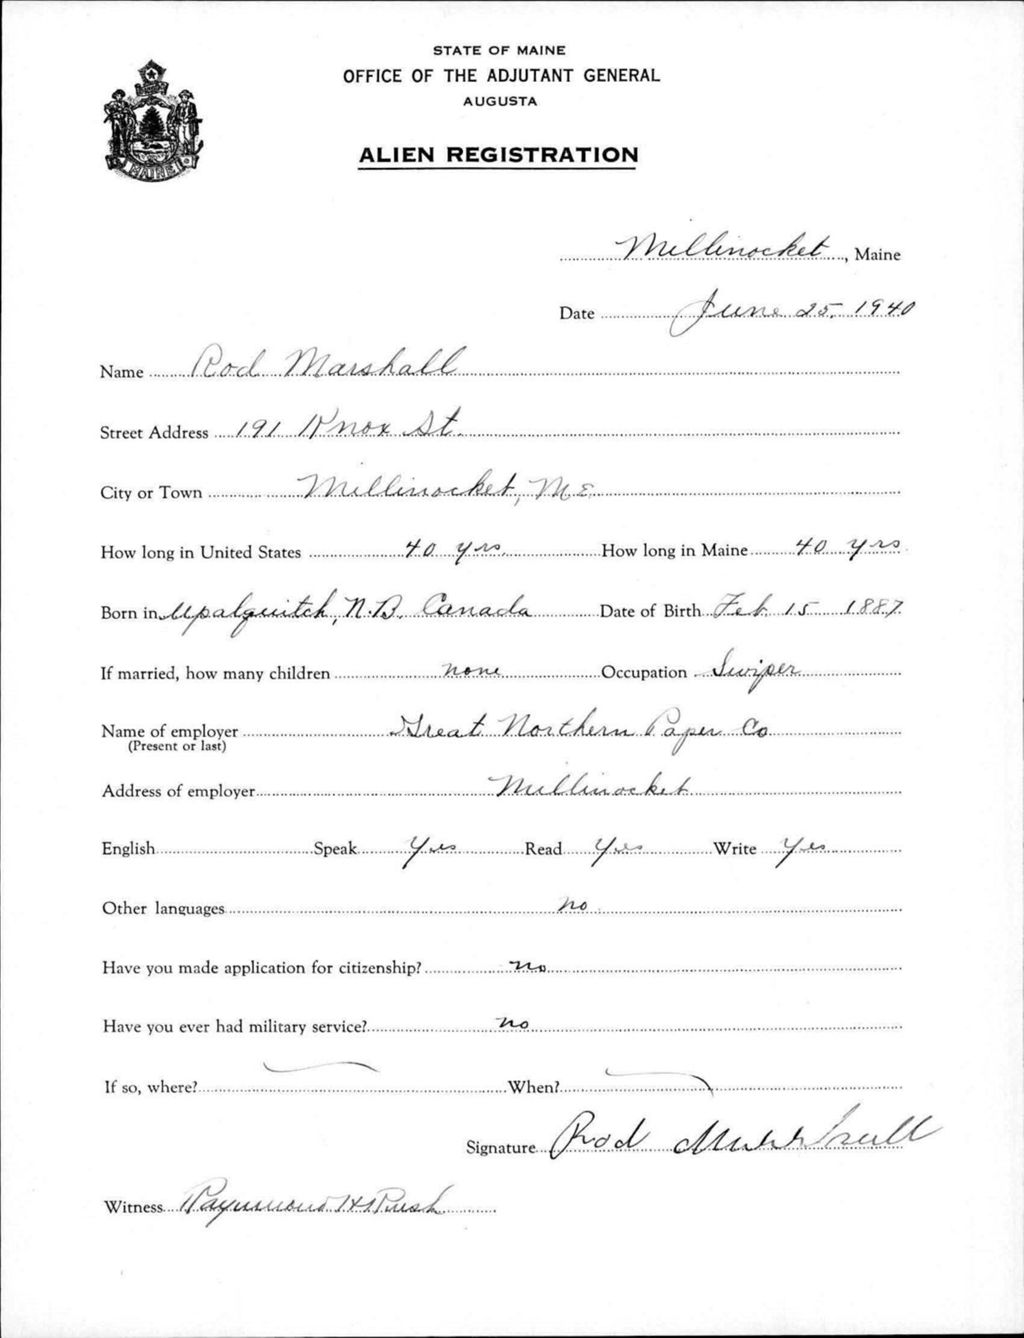 STATE OF MAINE
OFFICE OF THE ADJUTANT GENERAL
AUGUSTA
ALIEN REGISTRATION
MAINE
Millinocket, Maine
Date June 25, 1940
Name Rod Marshall
Street Address 191 Knox St.
City or Town Millinocket, Me.
How long in United States 40 yrs. How long in Maine 40 yrs.
Born in Upalquitch, N.B. Canada Date of Birth Feb. 15 1887
If married, how many children none Occupation Swiper
Name of employer Great Northern Paper Co
(Present or last)
Address of employer Millinocket
English Speak Yes Read Yes Write Yes
Other languages no
Have you made application for citizenship? no
Have you ever had military service? no
If so, where? When?
Signature Rod
Witness Raymond H Rush